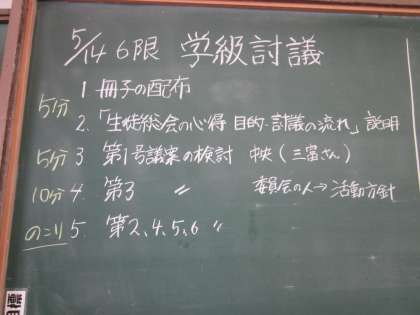 5/14 6限 学級討議
5分 1. 冊子の配布
2.「生徒総会の心得 目的・討議の流れ」説明
5分 3. 第1号議案の検討 中央(三富さん)
10分 4. 第3 〃 委員会の人→活動方針
のこり 5. 第2、4、5、6 〃